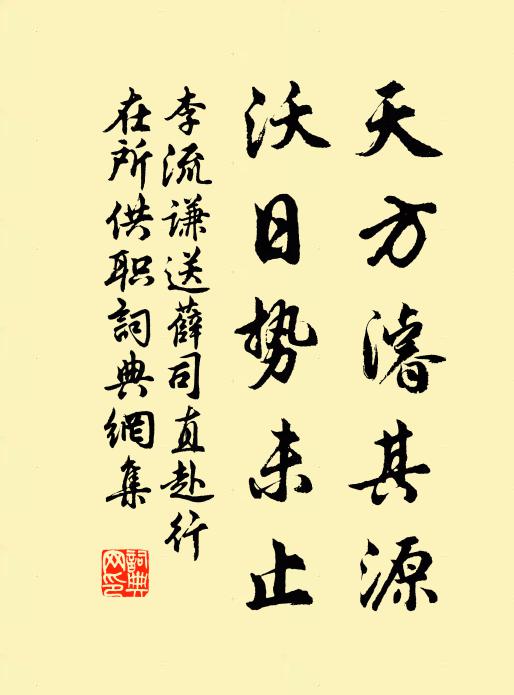 天方濬其源
沃日势未止
李流谦送薛司直赴行
在所供职詞典網集
詞典网印